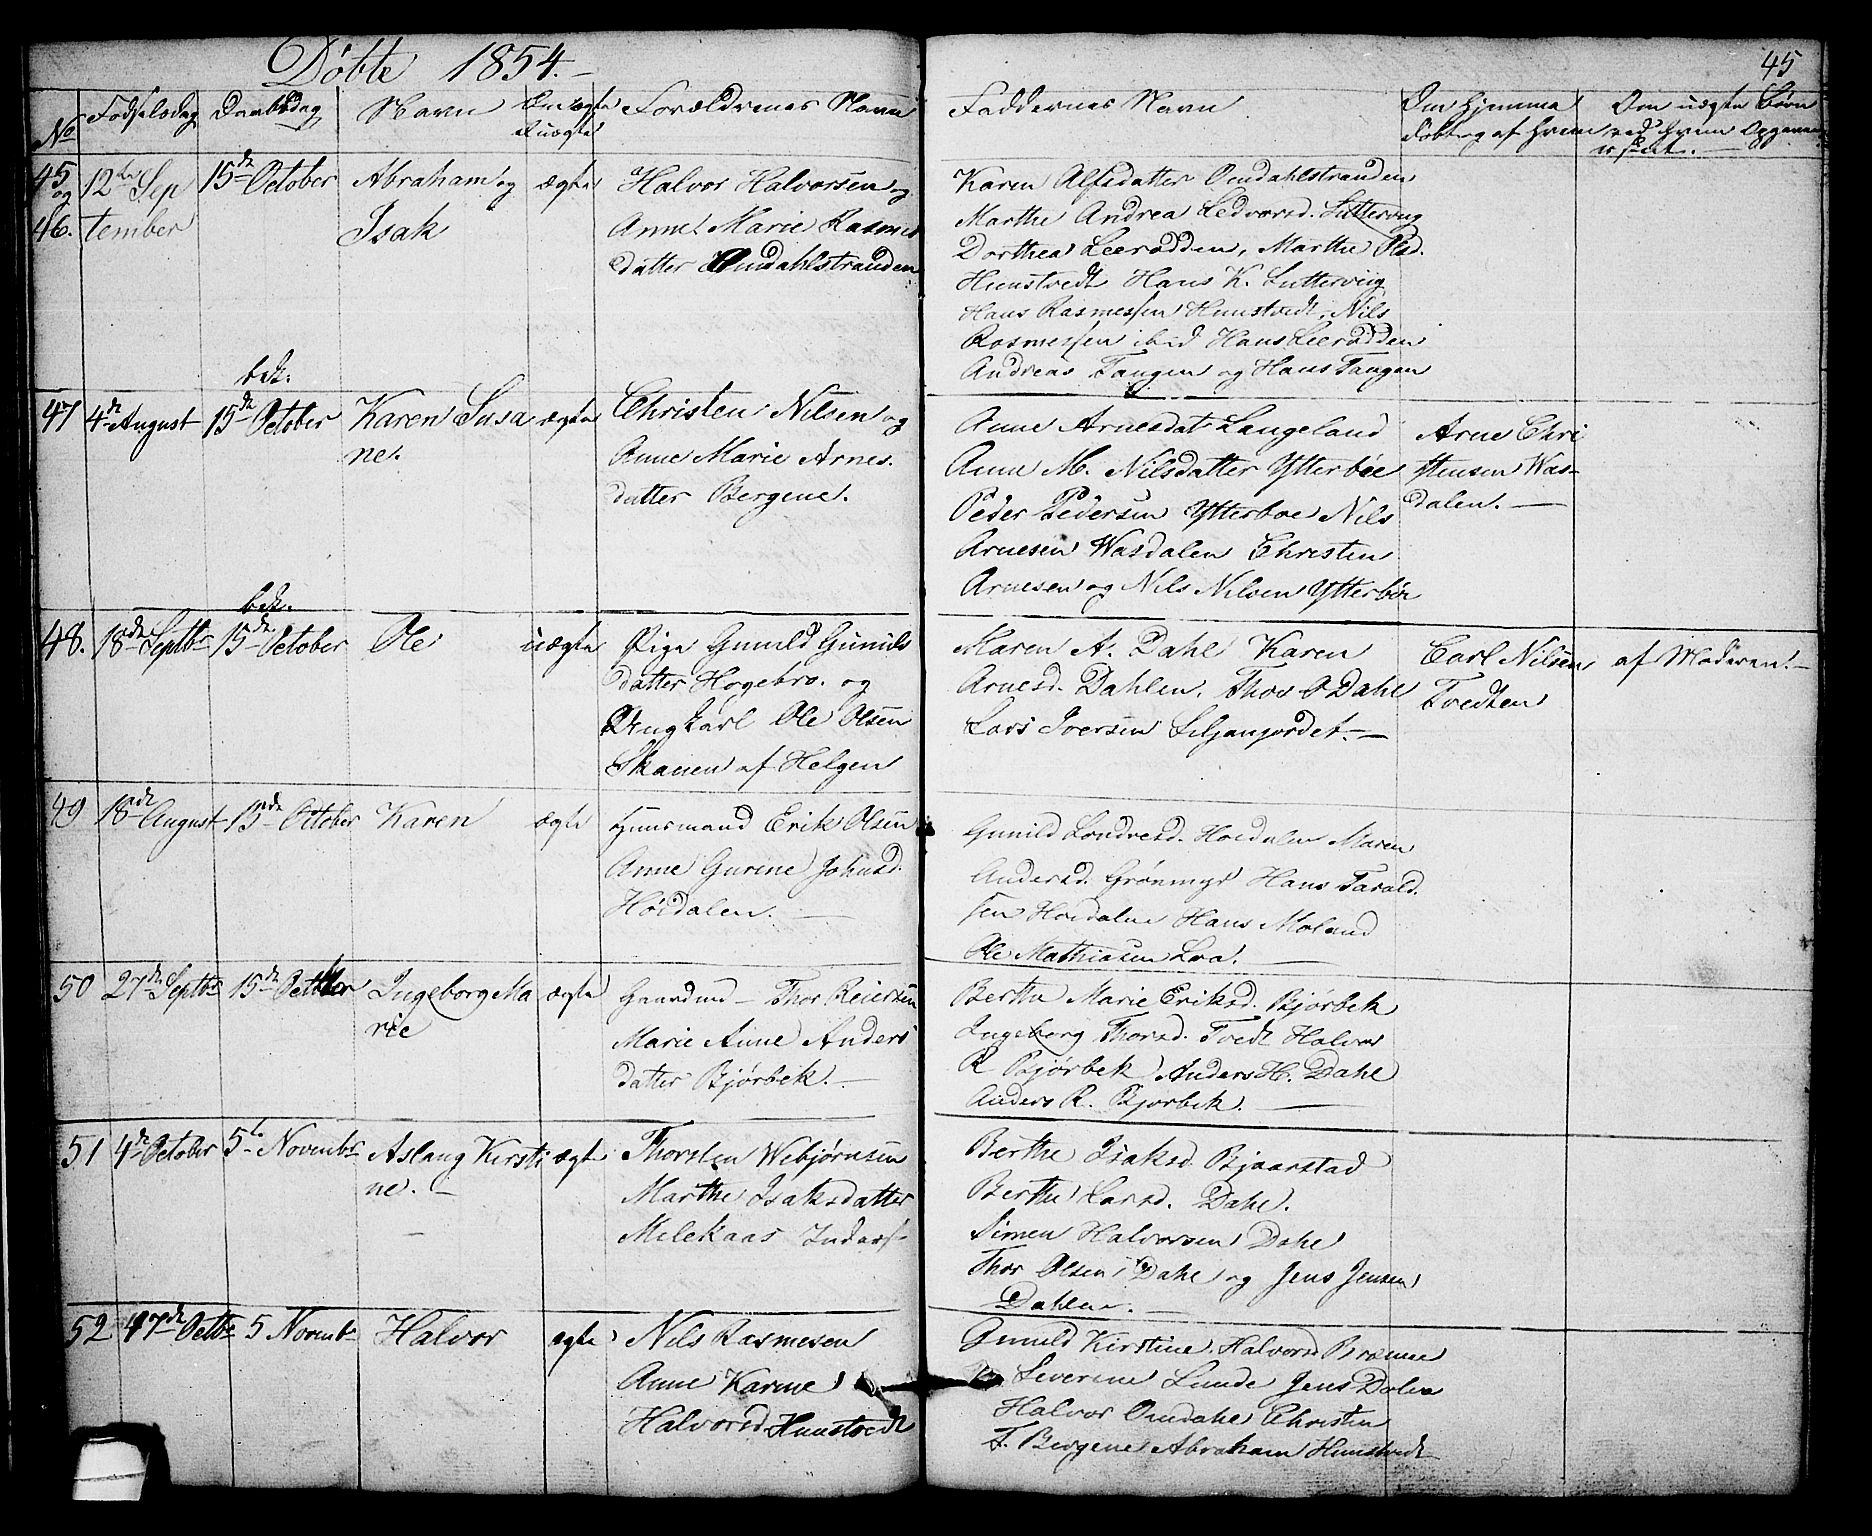 Døbte 1854.
45
No
Fødselsdag
Daabsdag
Navn
Om ægte
Ell uægte
Forældrenes Navn
Faddernes Navn
Om hjemme
døbt og af hvem
Om uægte Børn
ved hvem Opgaven
er skeet.
45 og 46. 12te Sep
tember
15de October
Abraham og
Isak
ægte
Halvor Halvorsen og
Anne Marie Rasmus
datter Omdahlstranden
Karen Alfsdatter Omdahlstranden
Marthe Andrea Ledvorsd. Luttervig
Dorthea Leerødden, Marthe Rsd.
Humstvedt Hans K. Lutterviig
Hans Rasmessen Humstvedt, Nils
Rasmessen ibid Hans Leerødden
Andreas Tangen og Hans Tangen
bek.
47 4de August 15de October
Karen Susa
ne.
ægte
Christen Nilsen og
Anne Marie Arnes.
datter Bergene.
Anne Arnesdat Langeland
Anne M. Nilsdatter Ytterbøe
Peder Pedersen Ytterboe Nils
Arnesen Wasdalen Christen
Arnesen og Nils Nilsen Ytterbøe
Arne Chri
stensen Was-
dalen.
bek.
48. 18de Septbr 15de October
Ole
uægte
Pige Gunild Gunuls
datter Hogebro. og
Ungkarl Ole Olsen
Skauen af Helgen
Maren A. Dahl Karen
Arnesd. Dahlen. Thor O Dahl
Lars Iversen Siljanjordet.
Carl Nilsen
Tvedten
af Moderen.
49 18de August 15de October
Karen
ægte
Huusmand Erik Olsen
Anne Gurine Johnsd.
Høidalen.
Gunild Londvesd. Hoidalen Maren
Andersd. Grönmyr Hans Tarald.
sen Hoidalen Hans Moland
Ole Mathiasen Loa.
50 27de Septbr 15de October
Ingeborg Ma
rie
ægte
Gaardmd - Thor Reiersen
Marie Anne Anders
datter Bjørbek.
Berthe Marie Eriksd. Bjørbek
Ingeborg Thorsd. Tvedt Halvor
R Bjørbek Anders H. Dahl
Anders R. Bjorbek.
51 4de October 5te Novembr
Aslaug Kirsti
ne.
ægte
Thorsten Webjørnsen
Marthe Isaksdatter
Melekaas
Berthe Isaksd. Bjaarstad
Berthe Larsd. Dahl.
Simen Halvorsen Dahl
Thor Olsen Dahl og Jens Jensen
Dahlen.
52 17de Octbr 5 Novembr
Halvor
ægte
Nils Rasmesen
Anne Karine
Halvorsd Humstvedt
Gunild Kirstine Halvorsd
Severine Lunde Jens
Halvor Omdahl Christen
T. Bergene Abraham Humstvedt